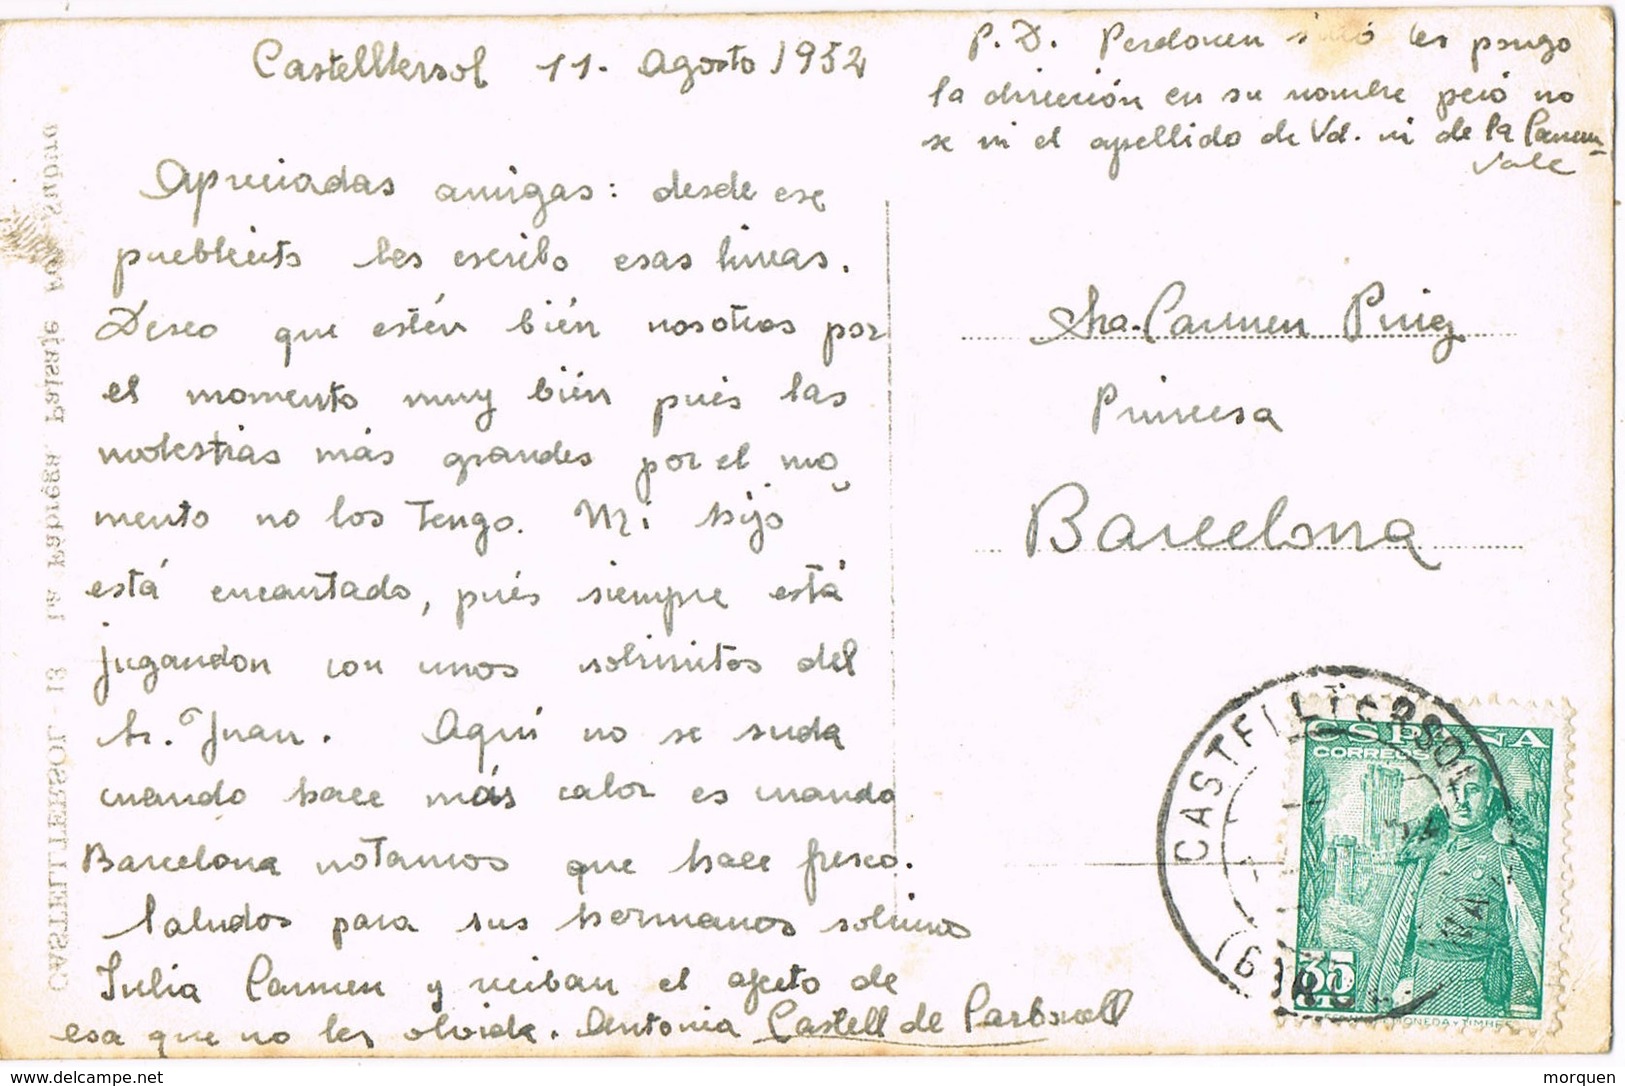 Castelltersol 11. Agosto 1952
Apreciadas amigas: desde ese
pueblecito les escribo esas lineas.
Deseo que estén bién nosotros por
el momento muy bién pués las
molestias más grandes por el mo
mento no los Tengo. Mi hijo
está encantado, pués siempre está
jugandon con unos sobrinitos del
Sr. Juan. Aquí no se suda
cuando hace más calor es cuando
Barcelona notamos que hace fresco.
Saludos para sus hermanos sobrinos
Julia Carmen y reciban el afecto de
esa que no les olvida. Antonia Castell de Carbonell
P.D. Perdonen les pongo
la dirección en su nombre peró no
se ni el apellido de Vd. ni de la Carmen
Vale
Sra. Carmen Puig
Princesa
Barcelona
CASTELLTERSOL
ESPAÑA
CORREOS
35
CTS
MONEDA Y TIMBRE
CASTELLTERSOL - 13 La Fábrega. Paisaje
www.delcampe.net
morquen